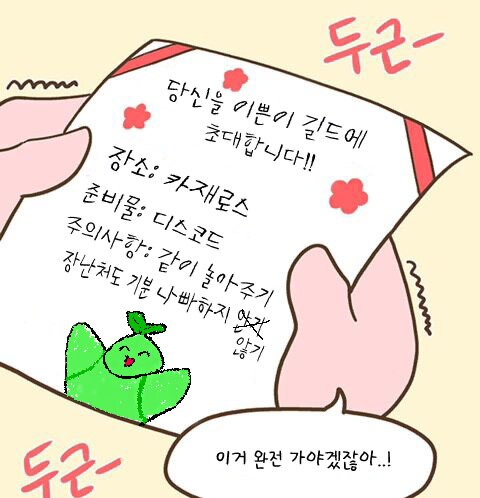 두근-
당신을 이쁜이 길드에
초대합니다!!
장소: 카재로스
준비물: 디스코드
주의사항: 같이 놀아주기
장난쳐도 기분 나빠하지
않기
이거 완전 가야겠잖아..!
두근-